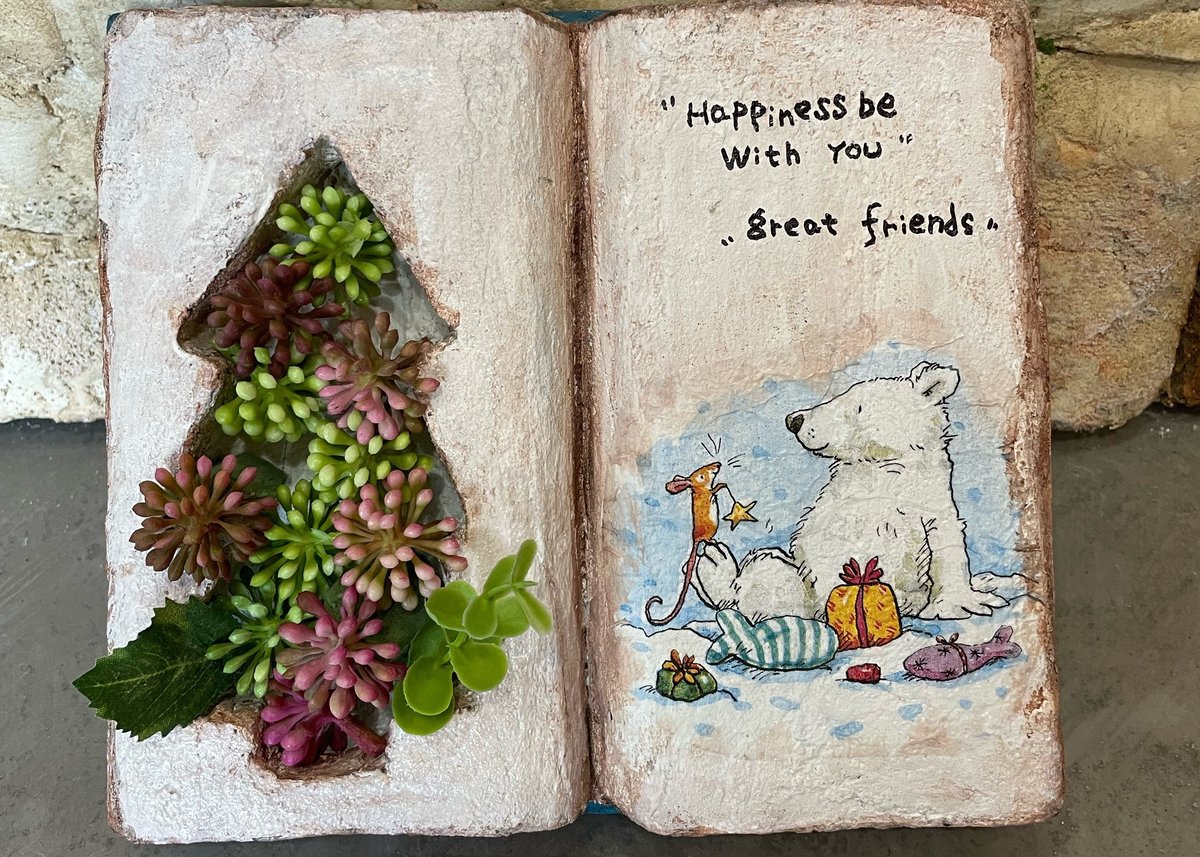 "Happiness be
With You"
"great friends"